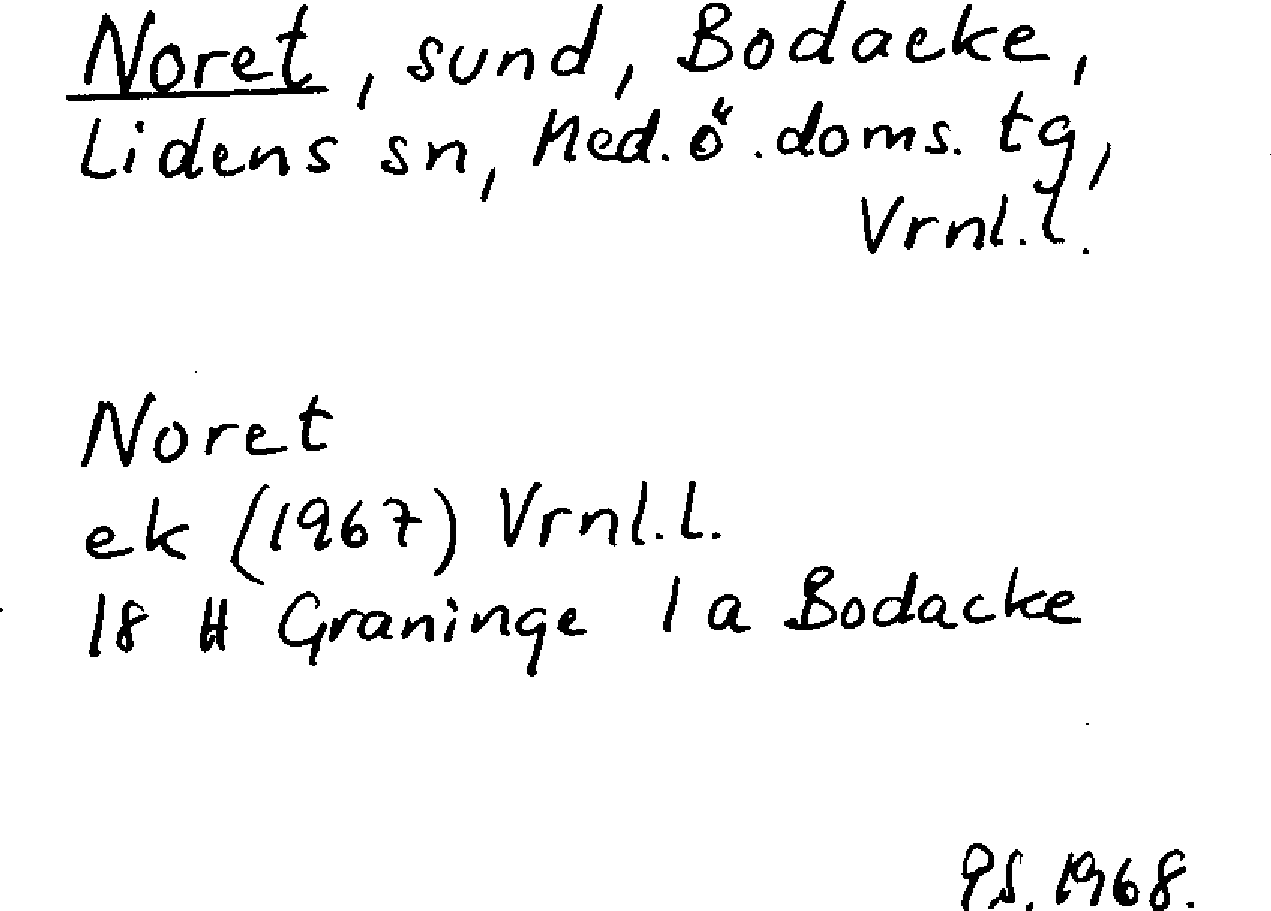 Noret, sund, Bodacke,
Lidens sn, Med. ö. doms. tg,
Vrnl.l.
Noret
ek (1967) Vrnl.l.
18 H Graninge 1 a Bodacke
P.S. 1968.